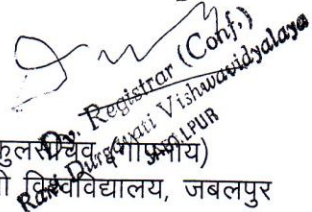 Dy. Registrar (Conf.)
Rani Durgavati Vishwavidyalaya
JABALPUR
कुलसचिव (गोपनीय)
विश्वविद्यालय, जबलपुर